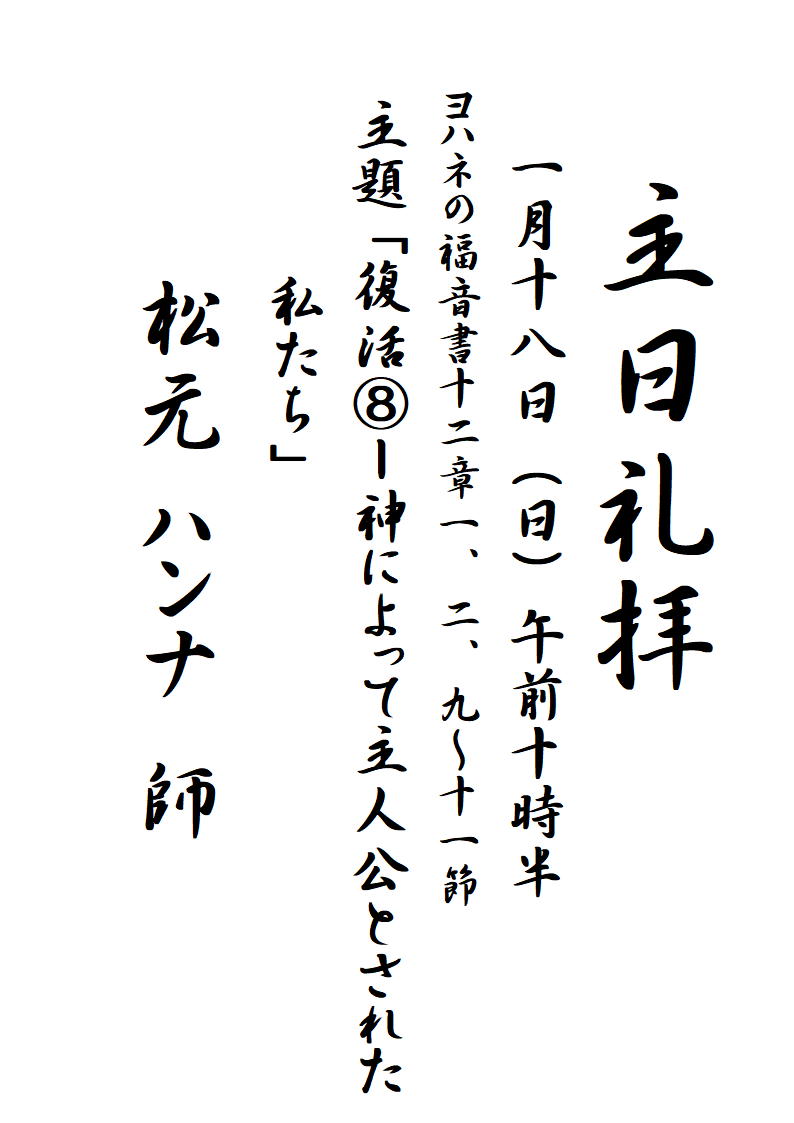 主日礼拝
一月十八日（日）午前十時半
ヨハネの福音書十二章一、二、九～十一節
主題「復活⑧ー神によって主人公とされた
私たち」
松元 ハンナ 師